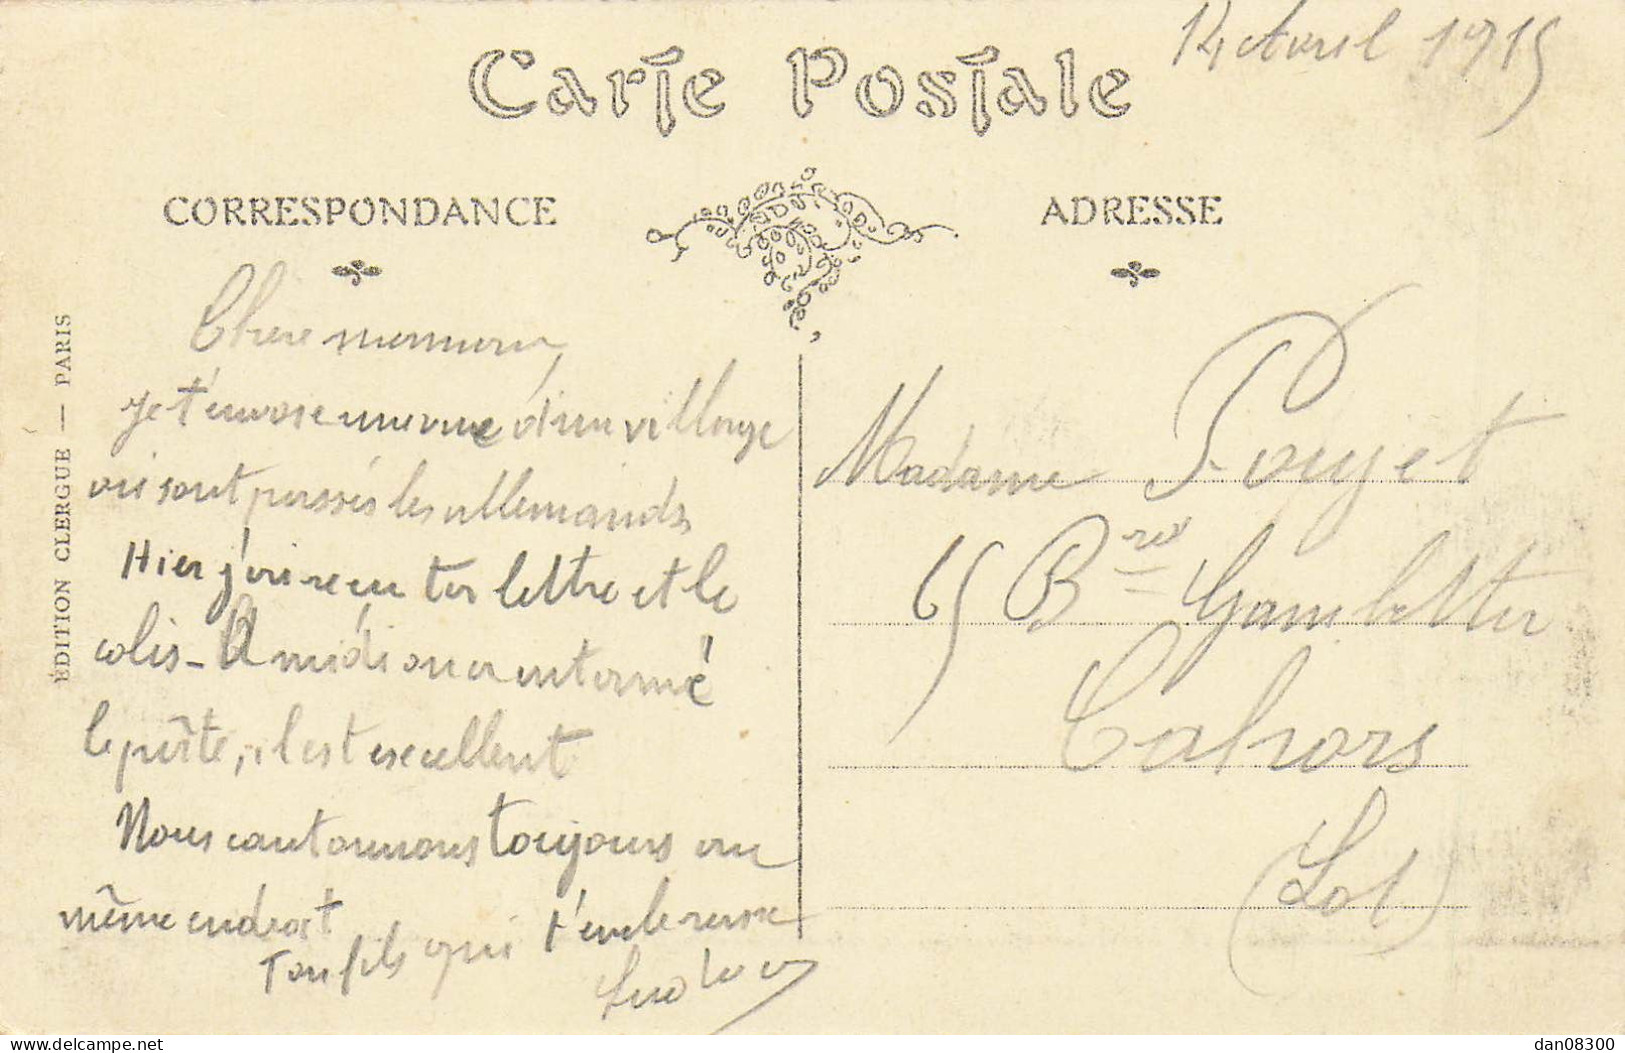 14 Avril 1915
Carte Postale
CORRESPONDANCE
ADRESSE
ÉDITION CLERGUE — PARIS
Chère maman,
je t'envoie une vue d'un village
où sont passés les allemands
Hier j'ai reçu ta lettre et le
colis - A midi on a entamé
le pâté, il est excellent
Nous cantonnons toujours au
même endroit
Ton fils qui t'embrasse
Madame Pouget
65 Bd Gambetta
Cahors
(Lot)
delcampe.net
dan08300